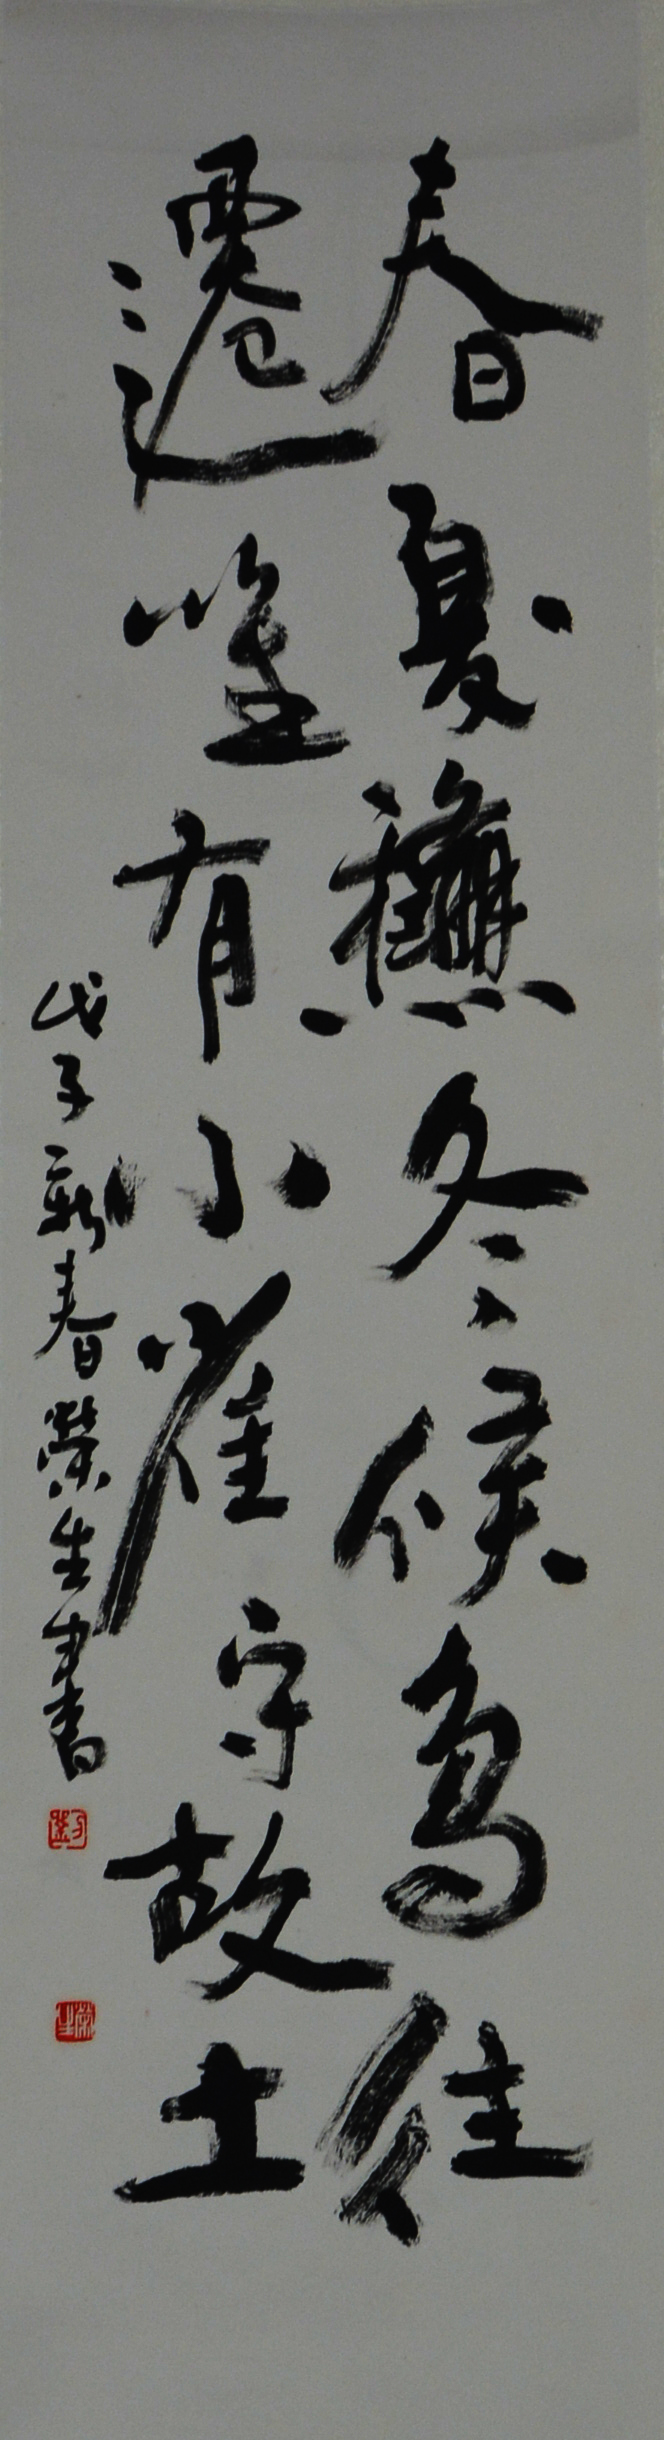 春夏龝冬候鳥往
遷唯有小雀守故土
戊子新春榮生書
榮生